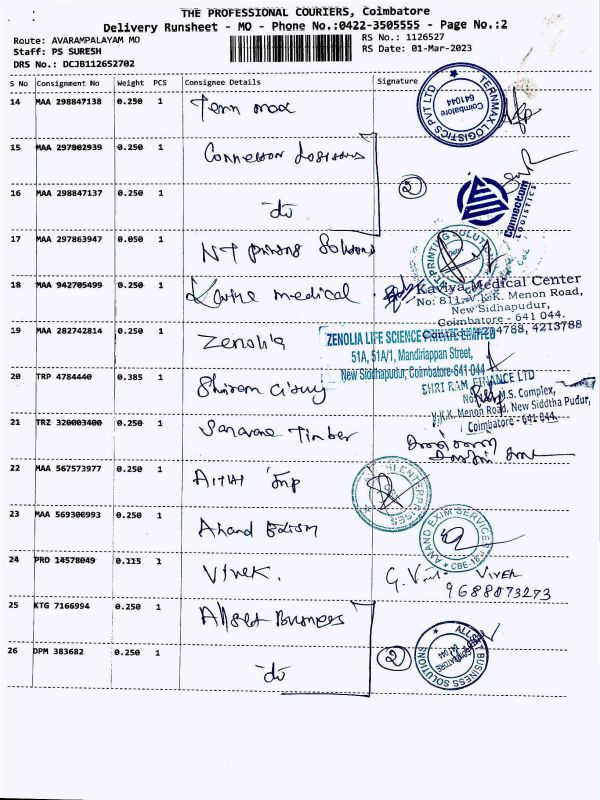 THE PROFESSIONAL COURIERS, Coimbatore
Delivery Runsheet - MO - Phone No.:0422-3505555 - Page No.:2
Route: AVARAMPALAYAM MO
RS No.: 1126527
Staff: PS SURESH
RS Date: 01-Mar-2023
DRS No.: DCJB112652702
S No Consignment No Weight PCS Consignee Details Signature
14 MAA 298847138 0.250 1
TERNMAX LOGISTICS PVT LTD
Coimbatore
641044
15 MAA 297802939 0.250 1
16 MAA 298847137 0.250 1 do
2
Connectom
LOGISTICS
17 MAA 297863947 0.050 1 NT Printing Solutions
PRINTING SOLUTIONS
18 MAA 942705499 0.250 1 Kaviya medical
Kaviya Medical Center
No: 811, V.K.K. Menon Road,
New Sidhapudur,
Coimbatore - 641 044.
4213788
19 MAA 282742814 0.250 1 Zenolia
ZENOLIA LIFE SCIENCE PRIVATE LIMITED
51A, 51A/1, Mandiriappan Street,
New Siddhapudur, Coimbatore-641 044
20 TRP 4784440 0.385 1
SHRI RAM FINANCE LTD
M.S. Complex,
V.K.K. Menon Road, New Siddtha Pudur,
Coimbatore - 641 044.
21 TRZ 320003400 0.250 1 Saravana Timber
22 MAA 567573977 0.250 1
ENTERPRISES
23 MAA 569300993 0.250 1 Anand
ANAND EXIM SERVICES
* CBE-18 *
24 PRO 14578049 0.115 1 Vivek.
VIVEK
9688073273
25 KTG 7166994 0.250 1 Allset Business
26 DPM 383682 0.250 1 do
2
ALLSET BUSINESS SOLUTIONS